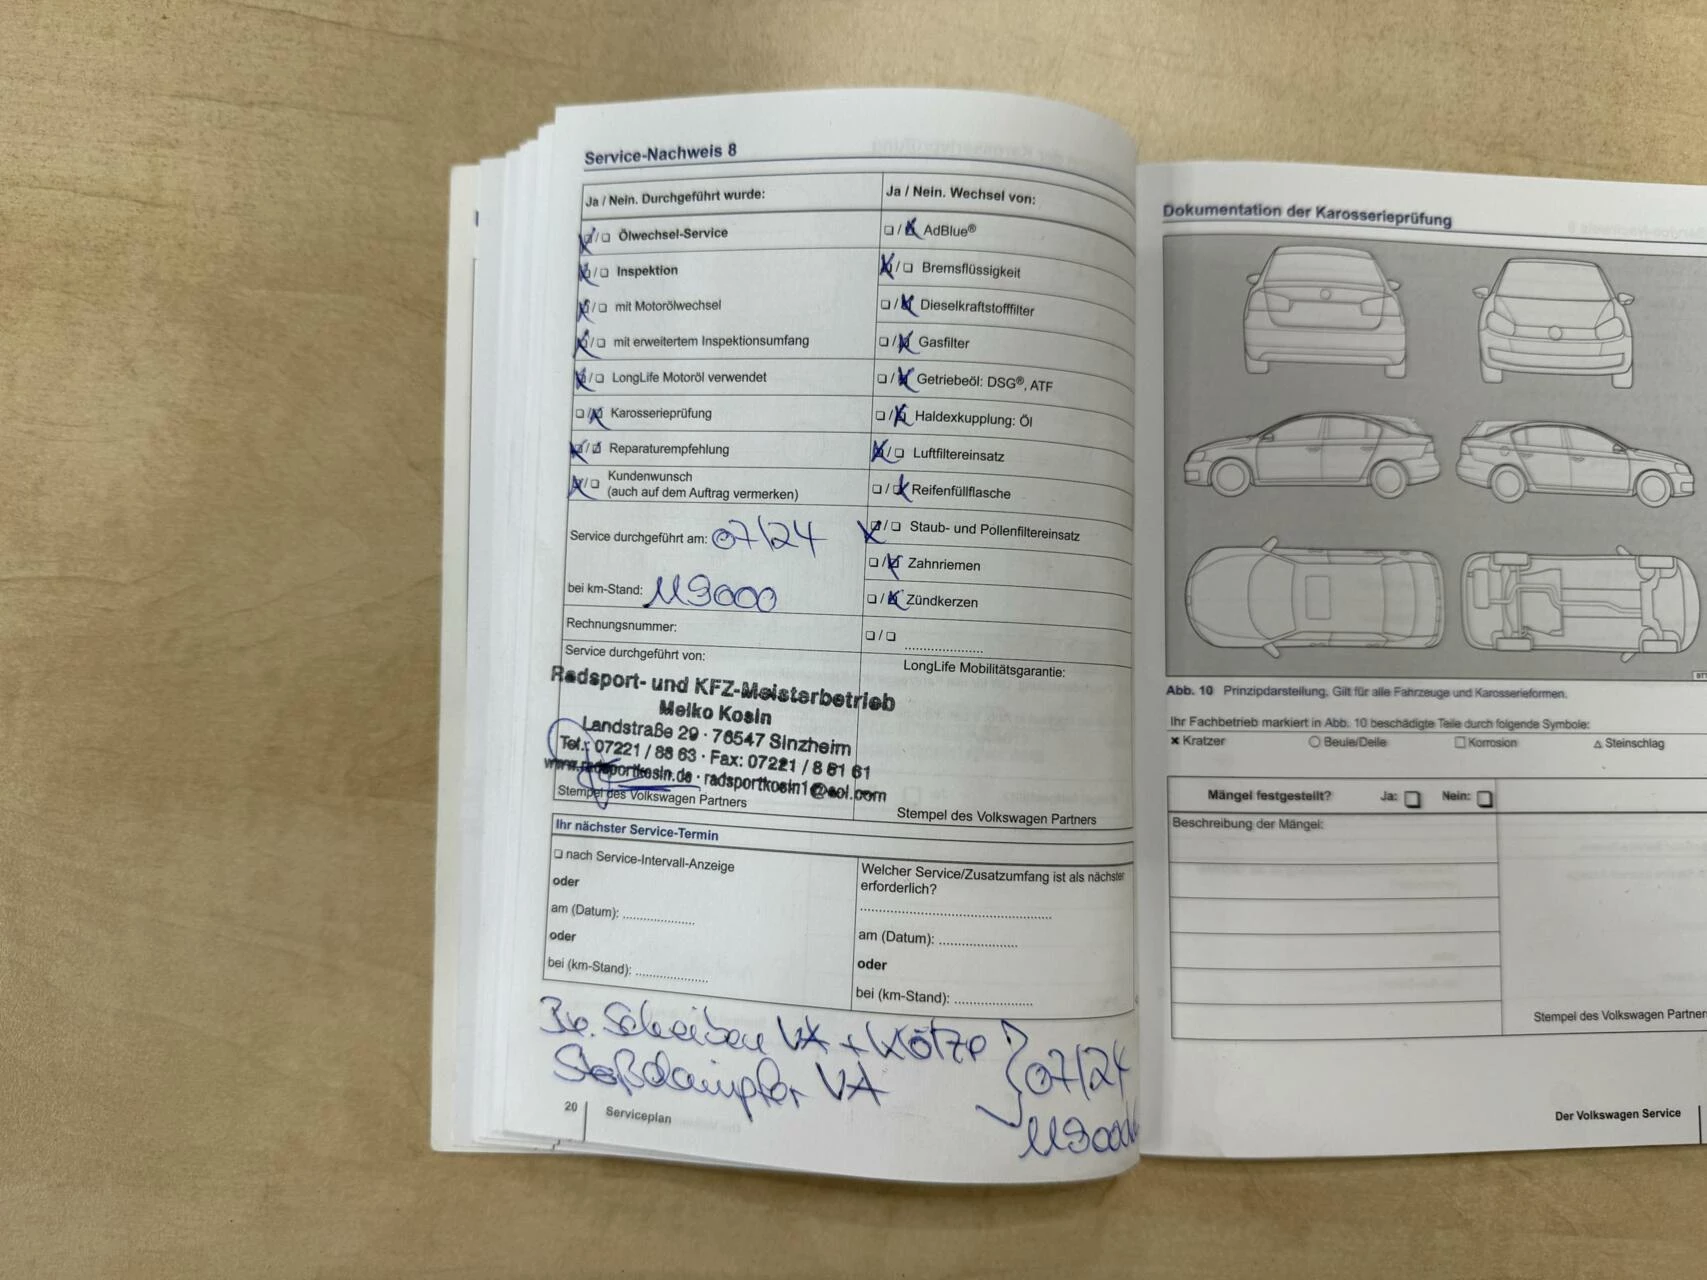 Service-Nachweis 8
Ja / Nein. Durchgeführt wurde:
Ölwechsel-Service
Inspektion
mit Motorölwechsel
mit erweitertem Inspektionsumfang
LongLife Motoröl verwendet
Karosserieprüfung
Reparaturempfehlung
Kundenwunsch
(auch auf dem Auftrag vermerken)
Service durchgeführt am: 07/24
bei km-Stand: 119000
Rechnungsnummer:
Service durchgeführt von:
Radsport- und KFZ-Meisterbetrieb
Meiko Kosin
Landstraße 29 · 76547 Sinzheim
Tel.: 07221 / 88 63 · Fax: 07221 / 8 81 61
www.radsportkosin.de · radsportkosin1@aol.com
Stempel des Volkswagen Partners
Ja / Nein. Wechsel von:
AdBlue®
Bremsflüssigkeit
Dieselkraftstofffilter
Gasfilter
Getriebeöl: DSG®, ATF
Haldexkupplung: Öl
Luftfiltereinsatz
Reifenfüllflasche
Staub- und Pollenfiltereinsatz
Zahnriemen
Zündkerzen
LongLife Mobilitätsgarantie:
Stempel des Volkswagen Partners
Ihr nächster Service-Termin
nach Service-Intervall-Anzeige
oder
am (Datum):
oder
bei (km-Stand):
Welcher Service/Zusatzumfang ist als nächster
erforderlich?
am (Datum):
oder
bei (km-Stand):
Br. Scheiben VA + Klötze
Stoßdämpfer VA
07/24
119000
20
Serviceplan
Dokumentation der Karosserieprüfung
Abb. 10 Prinzipdarstellung. Gilt für alle Fahrzeuge und Karosserieformen.
Ihr Fachbetrieb markiert in Abb. 10 beschädigte Teile durch folgende Symbole:
Kratzer Beule/Delle Korrosion Steinschlag
Mängel festgestellt? Ja: Nein:
Beschreibung der Mängel:
Stempel des Volkswagen Partners
Der Volkswagen Service